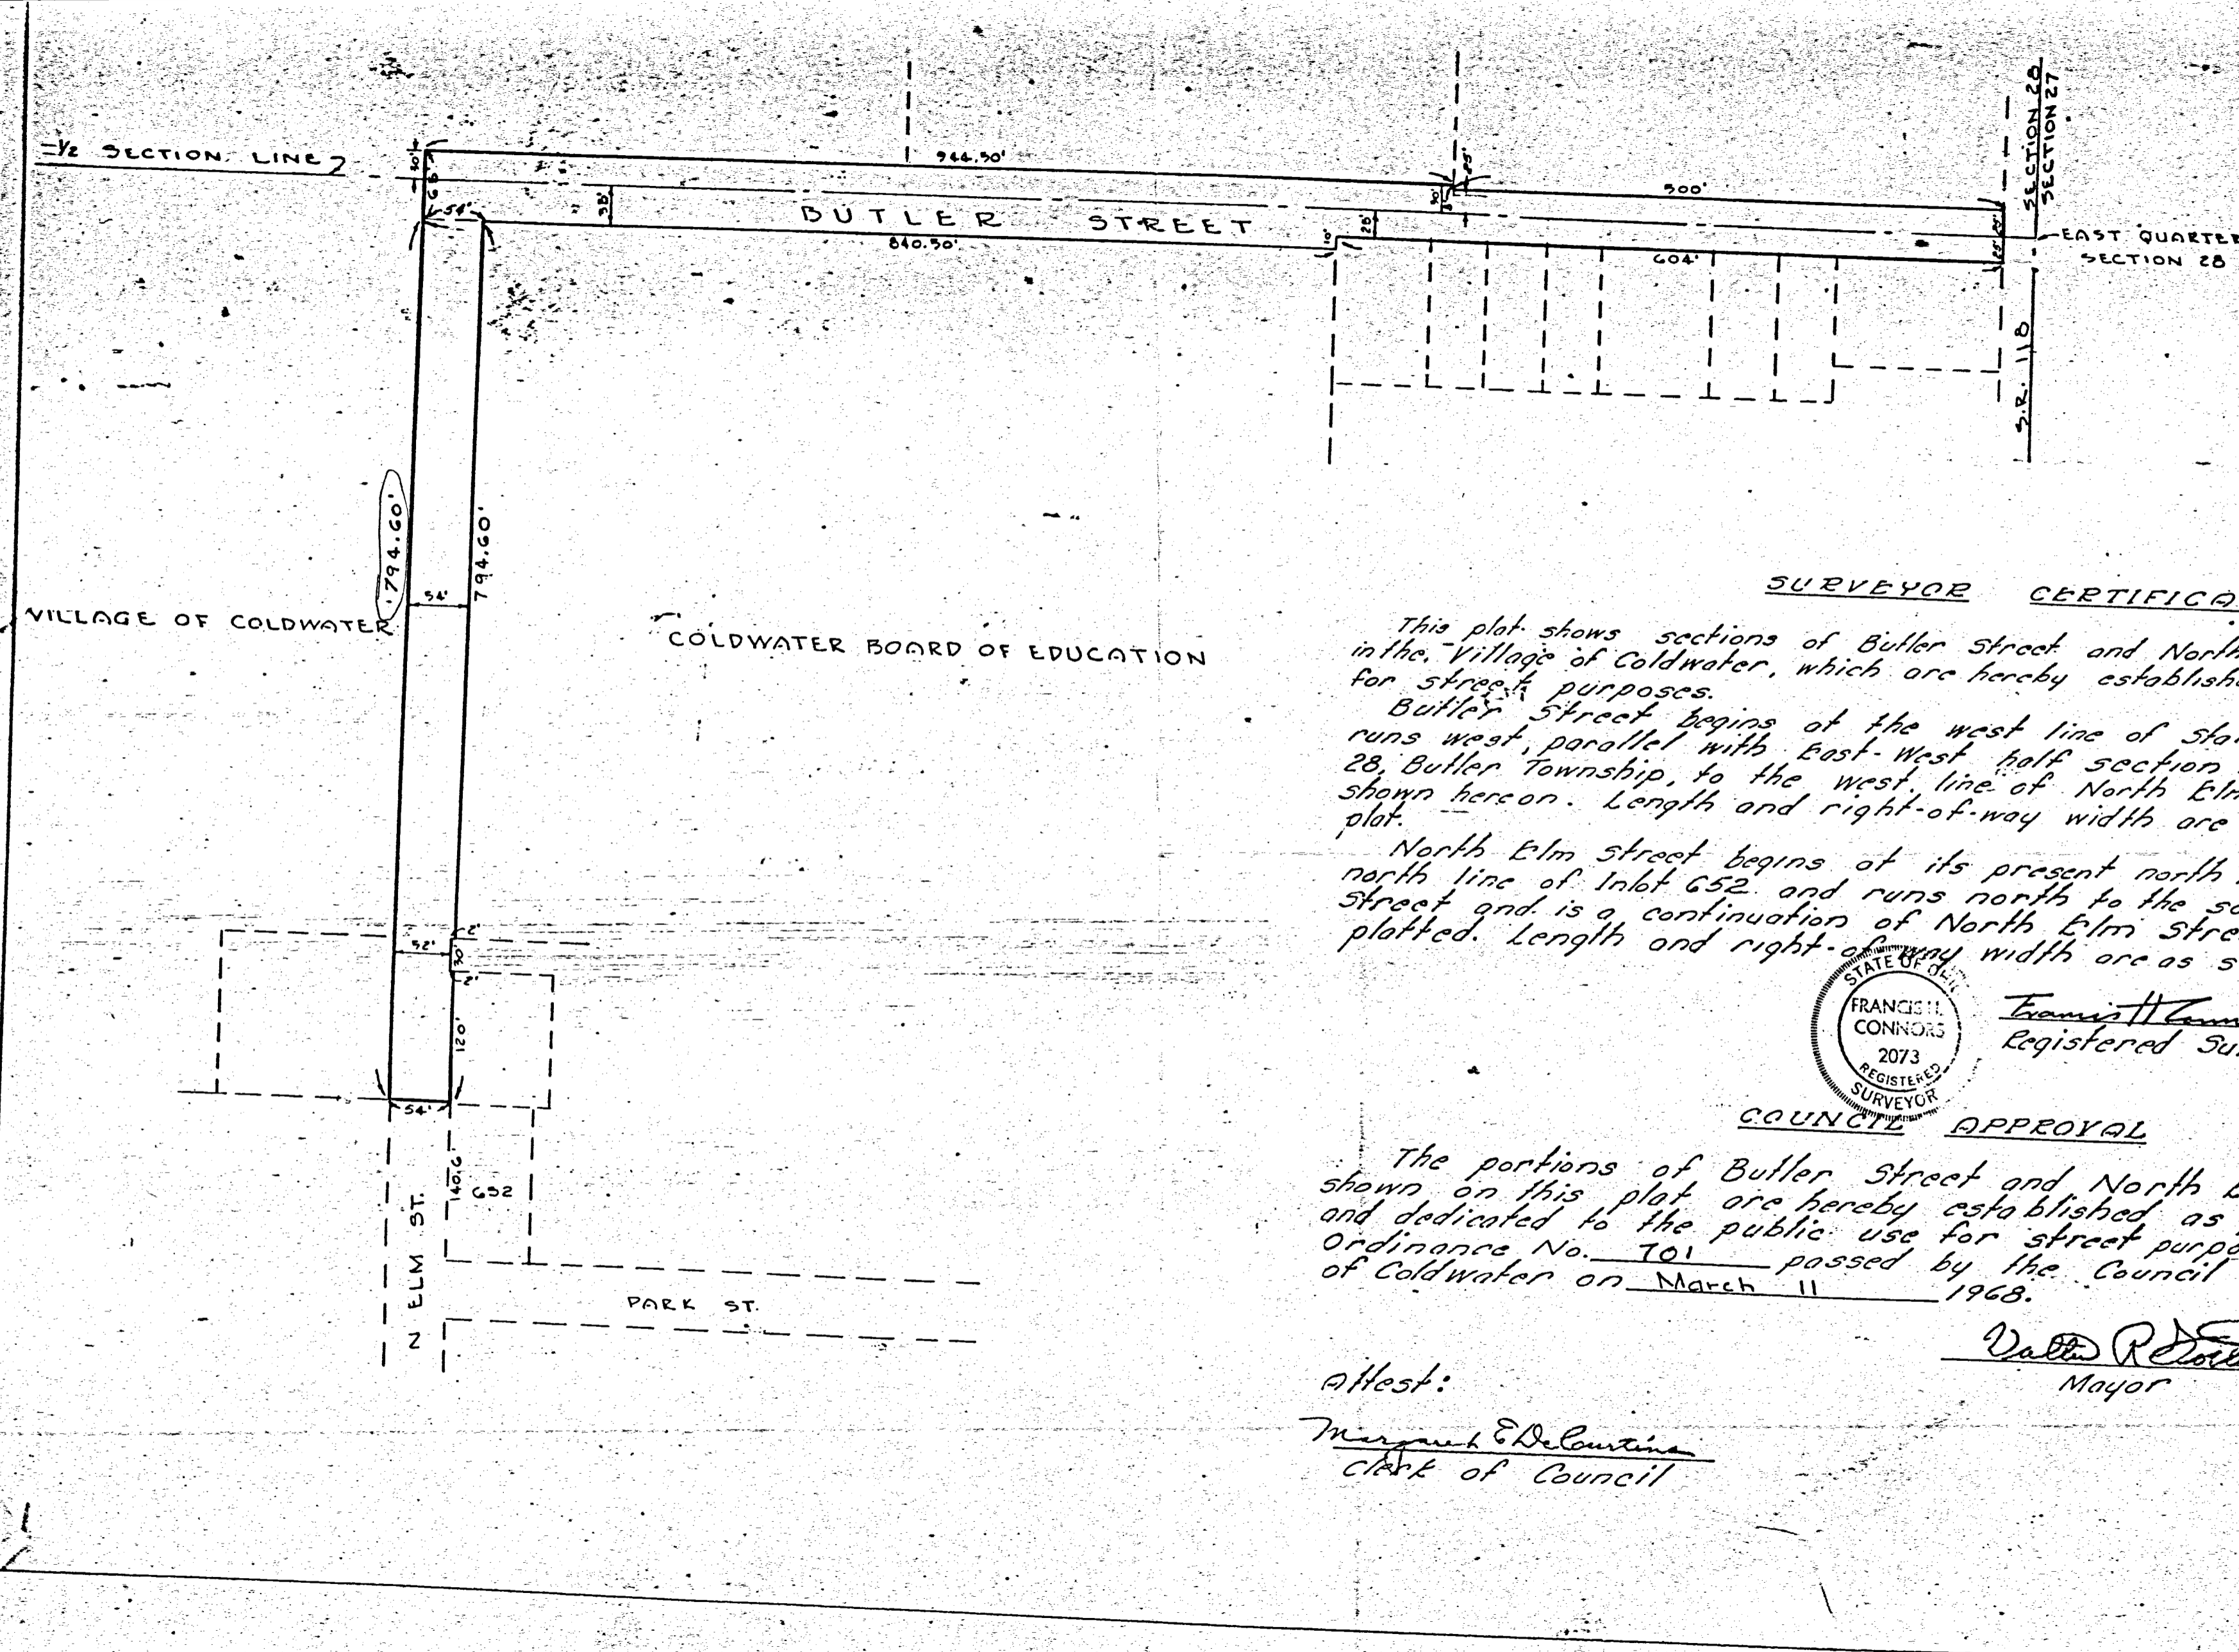 ½ SECTION LINE
30'
68'
54'
944.50'
38'
BUTLER STREET
840.50'
10'
28'
30'
25'
500'
604'
25' 25'
SECTION 28
SECTION 27
EAST QUARTER
SECTION 28
S.R. 118
794.60'
794.60'
54'
VILLAGE OF COLDWATER
COLDWATER BOARD OF EDUCATION
2'
52'
30'
2'
120'
54'
140.6'
652
N ELM ST.
PARK ST.
SURVEYOR CERTIFICA
This plat shows sections of Butler Street and North
in the Village of Coldwater, which are hereby establish
for street purposes.
Butler Street begins at the west line of Sta
runs west, parallel with East-West half section
28, Butler Township, to the west line of North Elm
shown hereon. Length and right-of-way width are
plat.
North Elm Street begins at its present north
north line of Inlot 652 and runs north to the so
Street and is a continuation of North Elm Stre
platted. Length and right-of-way width are as s
STATE OF
FRANCIS H.
CONNORS
2073
REGISTERED
SURVEYOR
Francis H
Registered Su
COUNCIL APPROVAL
The portions of Butler Street and North E
shown on this plat are hereby established as
and dedicated to the public use for street purpo
Ordinance No. 701 passed by the Council
of Coldwater on March 11 1968.
Mayor
Attest:
Margaret E DeCourtins
Clerk of Council